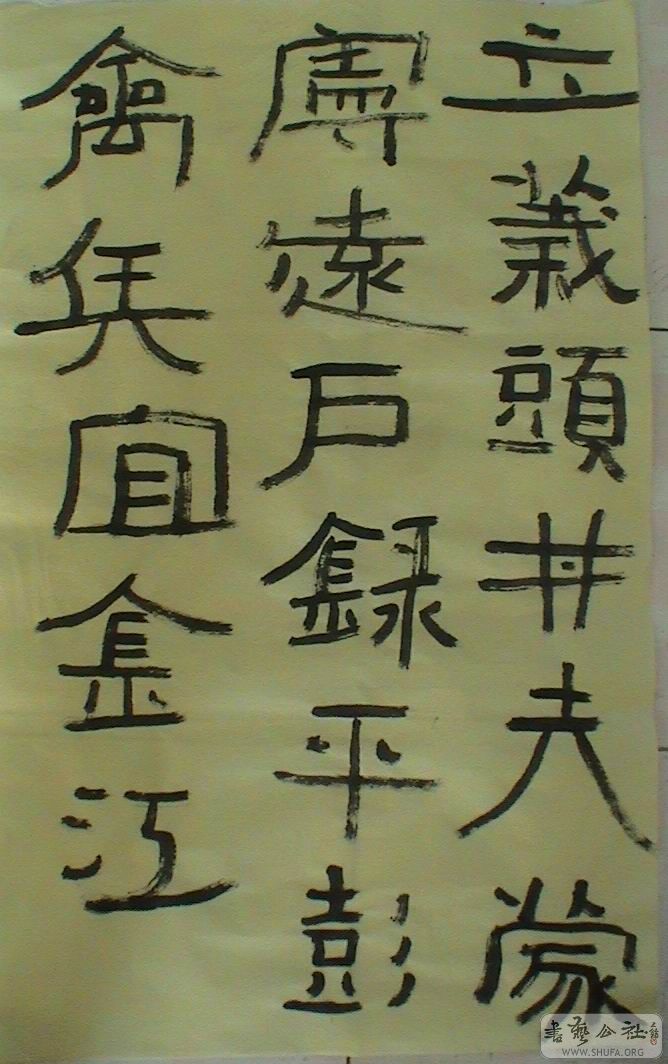 立義頭井夫蒙
寧遠戶録平彭
禽兵宜金江
書藝公社
WWW.SHUFA.ORG